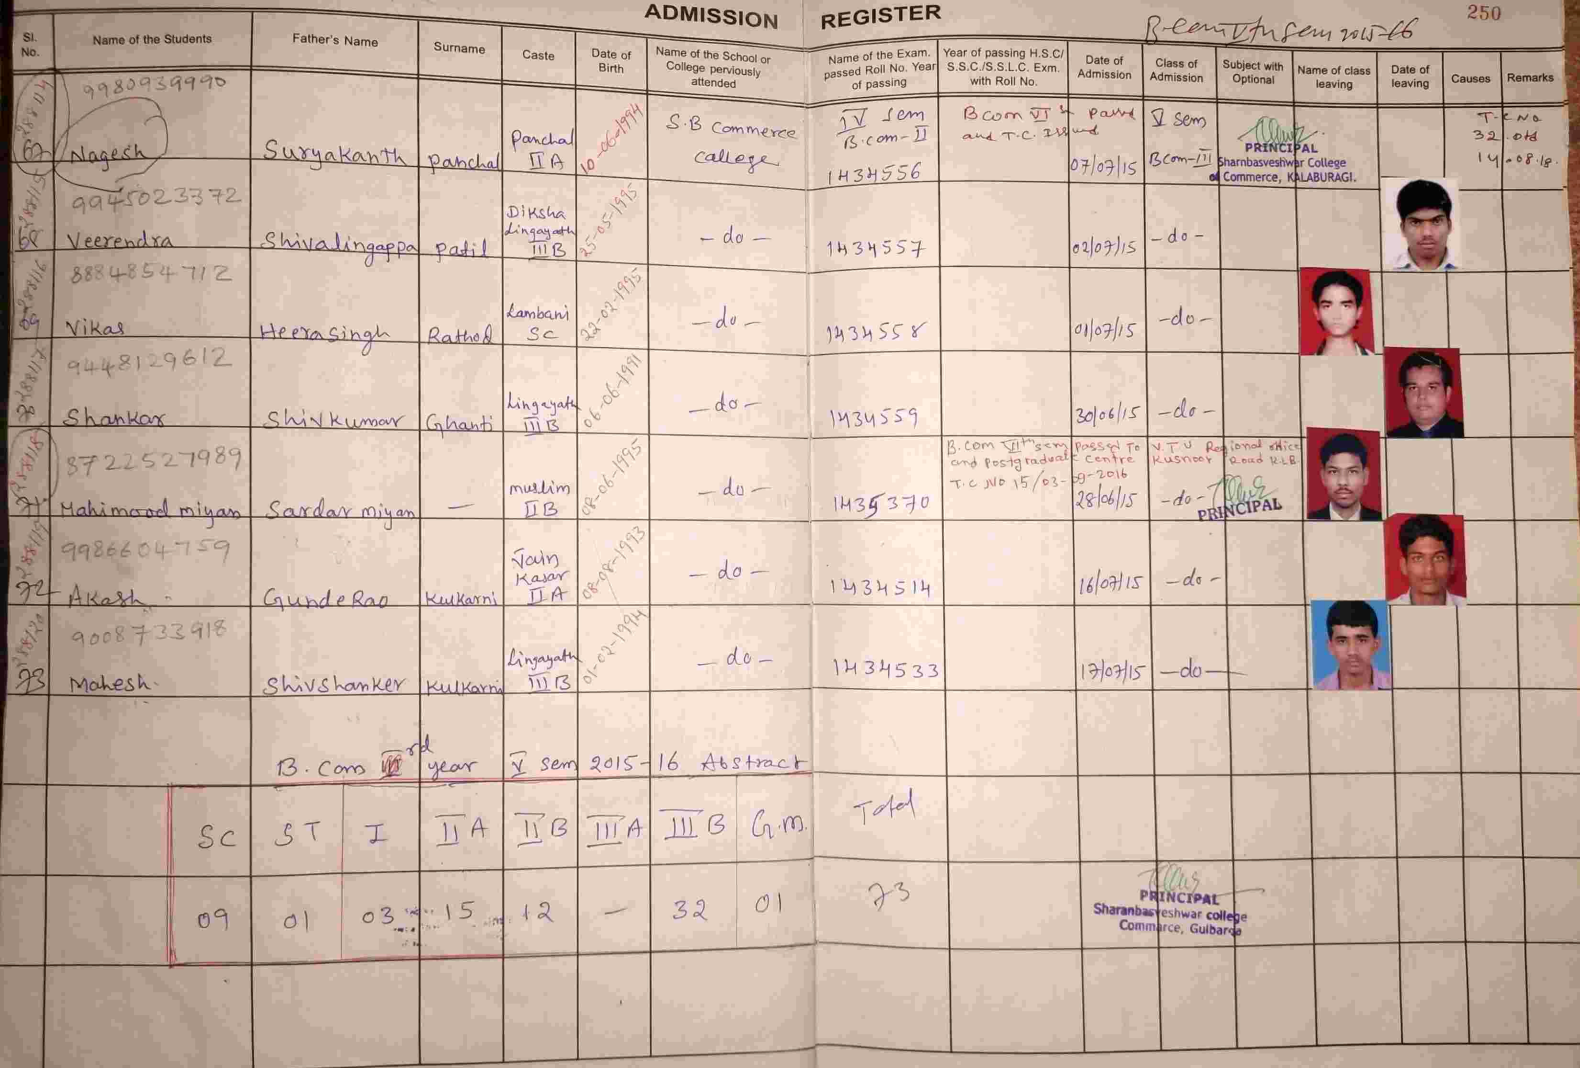 ADMISSION REGISTER
250
B.com Vth sem 2015-16
Sl. No. Name of the Students Father's Name Surname Caste Date of Birth Name of the School or College perviously attended Name of the Exam. passed Roll No. Year of passing Year of passing H.S.C/ S.S.C./S.S.L.C. Exm. with Roll No. Date of Admission Class of Admission Subject with Optional Name of class leaving Date of leaving Causes Remarks
9980939990
67 Nagesh Suryakanth Panchal Panchal II A 10-06-1994 S.B Commerce College IV Sem B.com-II 1434556 Bcom VI passd and T.C. Issued 07/07/15 V Sem Bcom-III T.C No 32 dtd 14-08-18.
PRINCIPAL
Sharnbasveshwar College
of Commerce, KALABURAGI.
9945023372
68 Veerendra Shivalingappa Patil Diksha Lingayath III B 25-05-1995 -do- 1434557 02/07/15 -do-
8884854712
69 Vikas Heerasingh Rathod Lambani SC 22-02-1995 -do- 1434558 01/07/15 -do-
9448129612
70 Shankar Shivkumar Ghanti Lingayath III B 06-06-1991 -do- 1434559 30/06/15 -do-
8722527989
71 Mahimood miyan Sardar miyan — muslim II B 08-06-1995 -do- 1435370 28/06/15 -do-
B.com VIth sem passed To V.T.U Regional office
and Postgraduate Centre Kusnoor Road KLB
T.C NO 15/03-09-2016
PRINCIPAL
9986604759
72 Akash Gunde Rao Kulkarni Jain Kasar II A 08-08-1993 -do- 1434514 16/07/15 -do-
9008733918
73 Mahesh Shivshanker Kulkarni Lingayath III B 01-02-1994 -do- 1434533 17/07/15 -do-
B.Com IIIrd year V Sem 2015-16 Abstract
SC ST I II A II B III A III B G.m. Total
09 01 03 15 12 — 32 01 73
PRINCIPAL
Sharanbasveshwar college
Commarce, Gulbarga